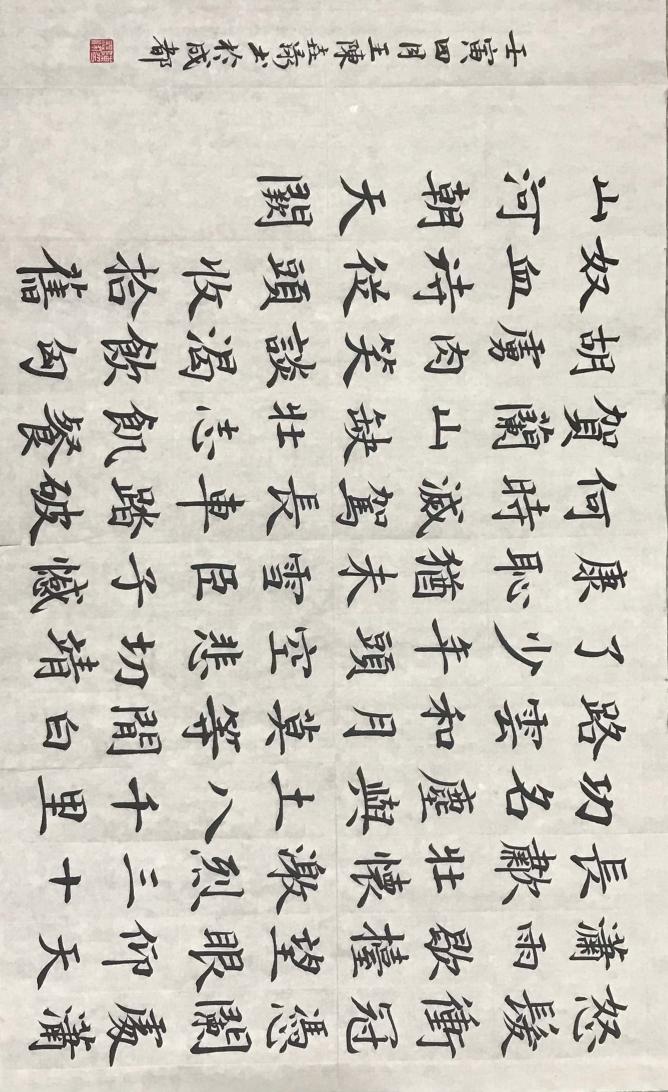 怒髮衝冠憑闌處瀟
瀟雨歇擡望眼仰天
長嘯壯懷激烈三十
功名塵與土八千里
路雲和月莫等閒白
了少年頭空悲切靖
康恥猶未雪臣子憾
何時滅駕長車踏破
賀蘭山缺壯志飢餐
胡虜肉笑談渴飲匈
奴血待從頭收拾舊
山河朝天闕
壬寅四月王陳書於成都